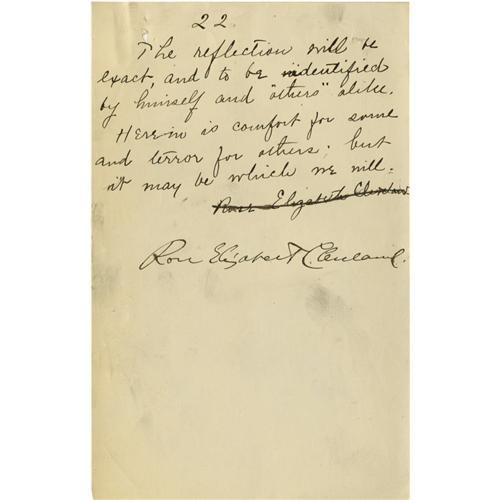 22
The reflection will be
exact, and to be identified
by himself and "others" alike.
Herein is comfort for some
and terror for others; but
it may be which we will.
Rose Elizabeth Cleveland
Rose Elizabeth Cleveland.